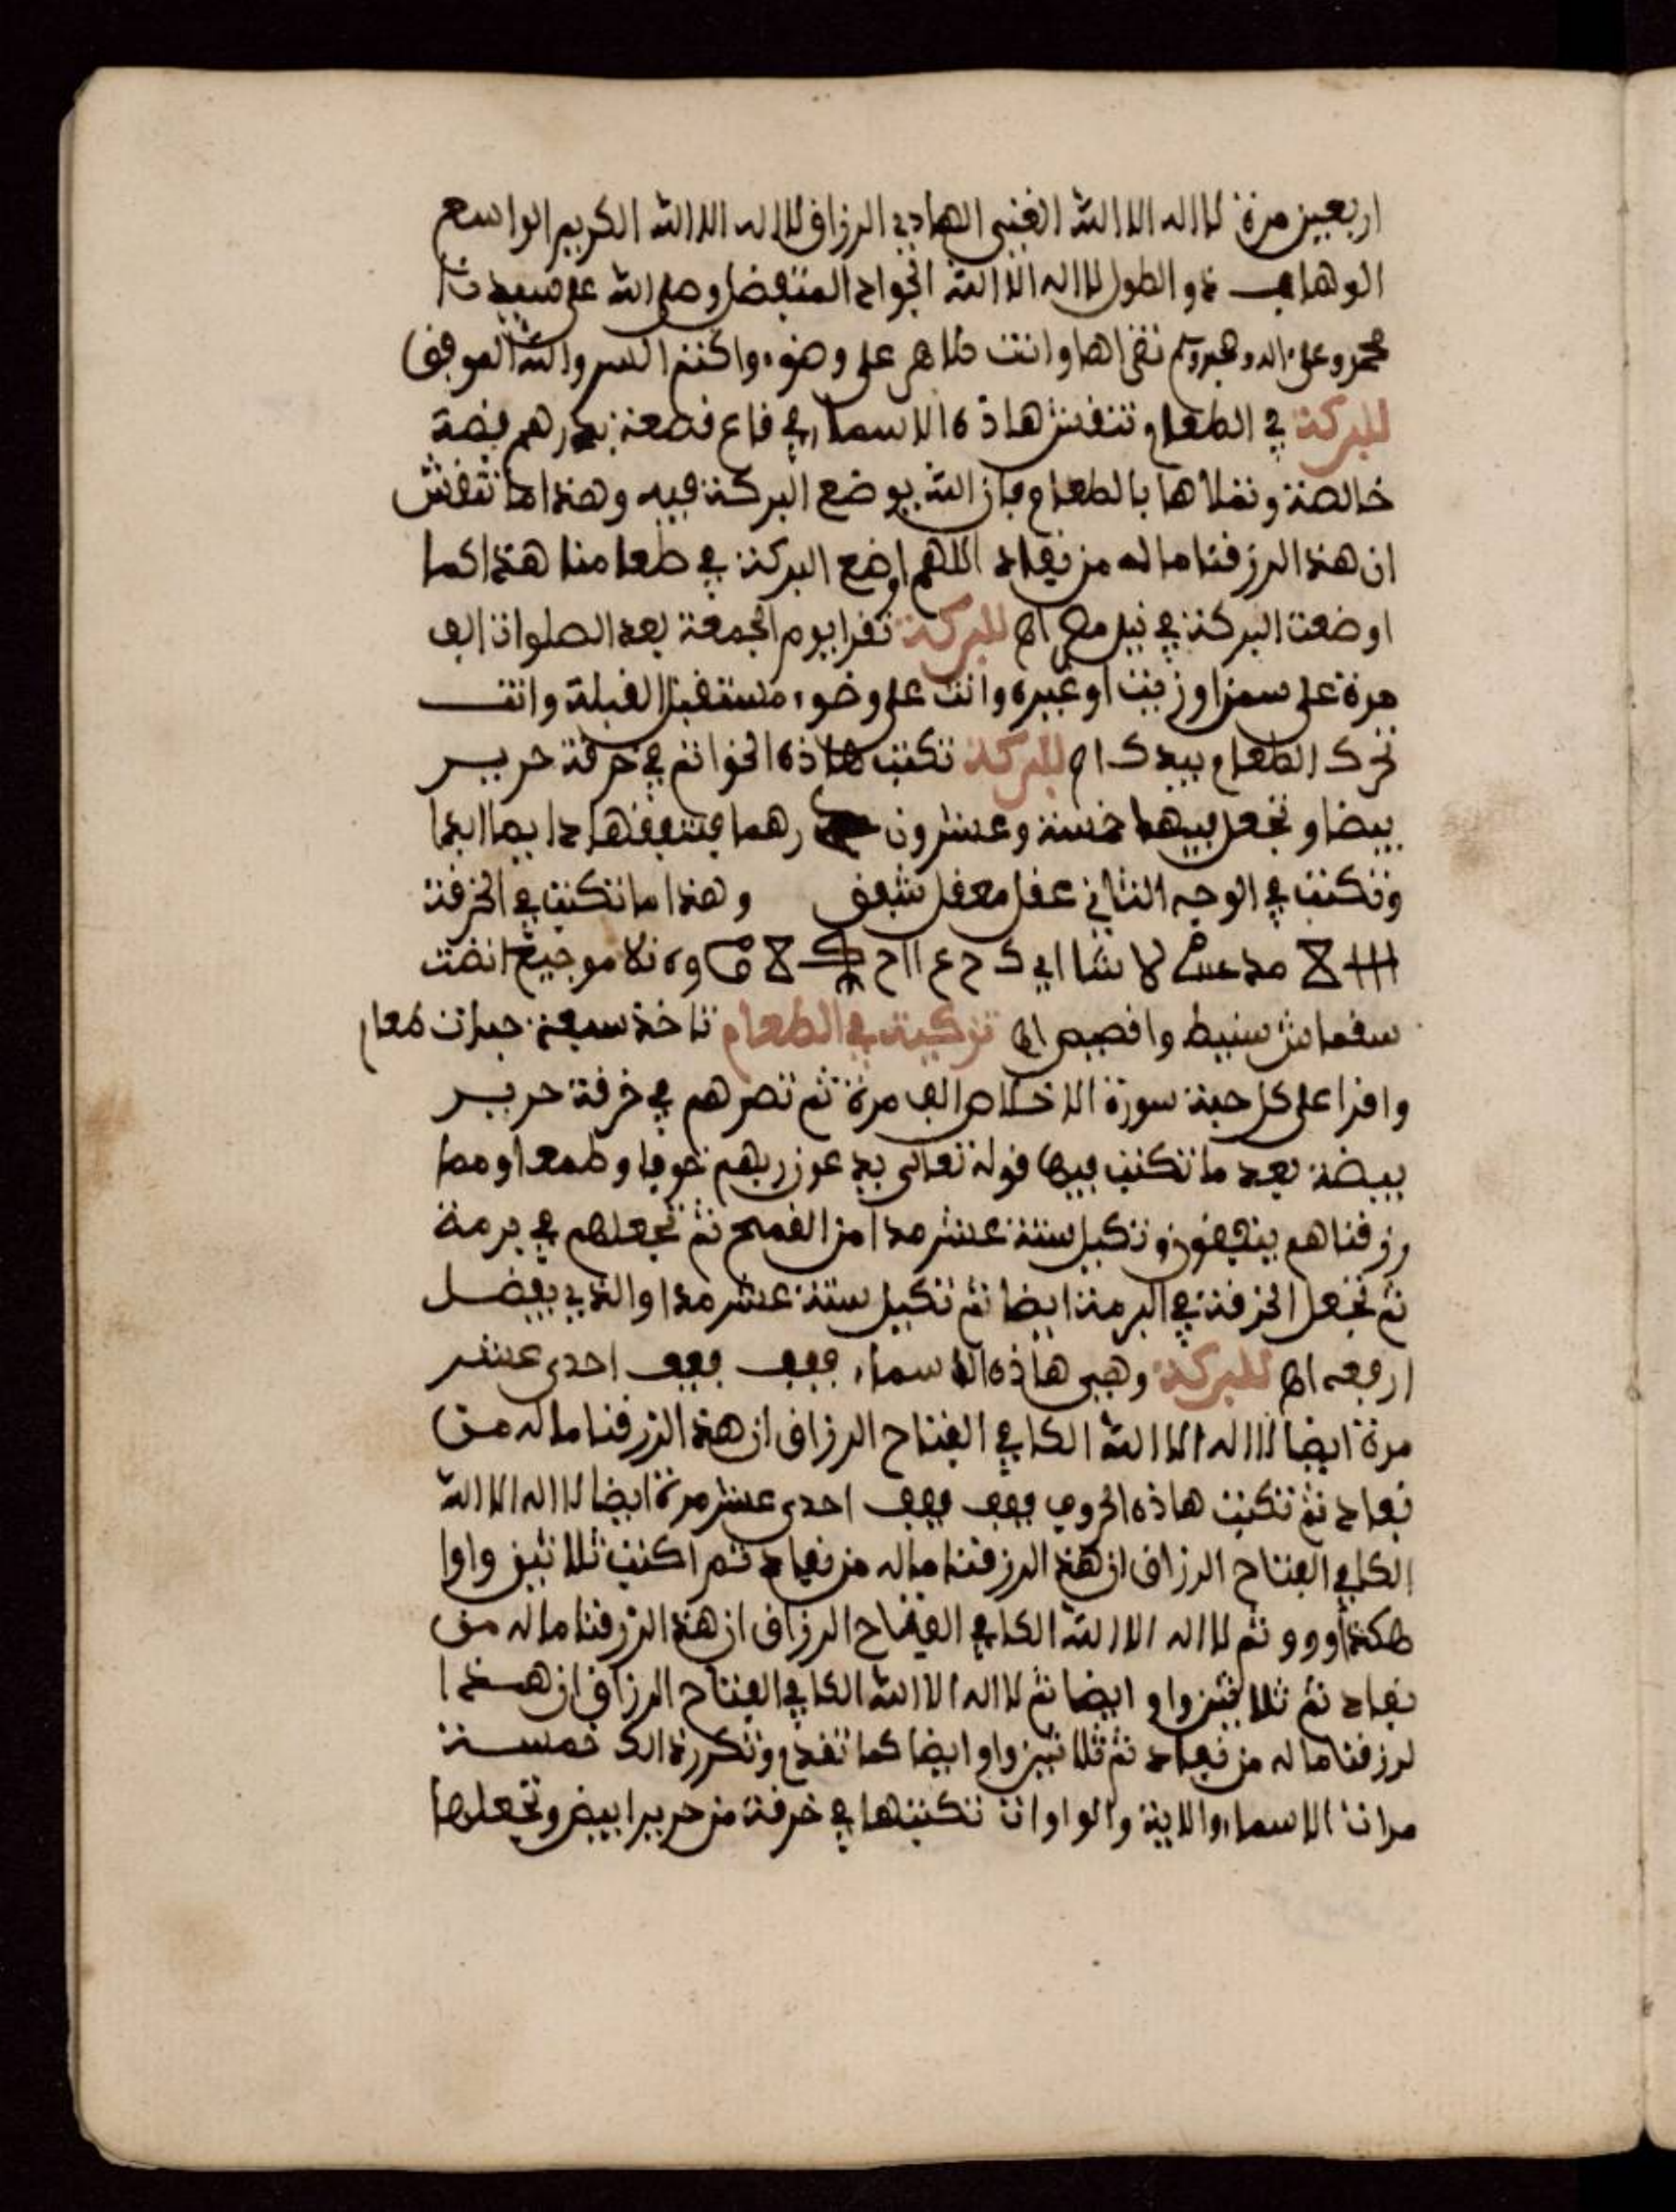 اربعين مرة لا اله الا الله الغني الهادي الرزاق لا اله الا الله الكريم الواسع
الوهاب ذو الطول لا اله الا الله الجواد المتفضل وصلى الله على سيدنا
محمد وعلى اله وصحبه وسلم تقراها وانت طاهر على وضوء واكتم السر والله الموفق
للبركة في الطعام تنقش هاذه الاسماء في قاع قصعة بدرهم فضة
خالصة وتملاها بالطعام فان الله يوضع البركة فيه وهذا ما تنقش
ان هذا لرزقنا ماله من نفاد اللهم اوضع البركة في طعامنا هذا كما
اوضعت البركة في نيل مصر اهـ للبركة تقرا يوم الجمعة بعد الصلوات الف
مرة على سمن او زيت او غيره وانت على وضوء مستقبل القبلة وانت
تحرك الطعام بيدك اهـ للبركة تكتب هاذه الخواتم في خرقة حرير
بيضا وتجعل فيها خمسة وعشرون درهما فتنفقها دايما ابدا
وتكتب في الوجه الثاني عقل معقل وهذا ما تكتب في الخرقة
لا اي ك ح ع ااح
سقماش سنيط اهـ تزكية في الطعام تاخذ سبعة حبات
واقرا على كل حبة سورة الاخلاص الف مرة ثم تصرهم في خرقة حرير
بيضة بعد ما تكتب فيها قوله تعالى يدعون ربهم خوفا وطمعا ومما
رزقناهم ينفقون وتكيل ستة عشر مدا من القمح ثم تجعلهم في برمة
ثم تجعل الخرقة في البرمة ايضا ثم تكيل ستة عشر مدا والذي يفضل
ارفعه اهـ للبركة وهي هاذه الاسماء ففف ففف احدى عشر
مرة ايضا لا اله الا الله الكافي الفتاح الرزاق ان هذا لرزقنا ماله من
نفاد ثم تكتب هاذه الحروف ففف ففف احدى عشر مرة ايضا لا اله الا الله
الكافي الفتاح الرزاق ان هذا لرزقنا ماله من نفاد ثم اكتب ثلاثين واوا
هكذا و و و ثم لا اله الا الله الكافي الفتاح الرزاق ان هذا لرزقنا ماله من
نفاد ثم ثلاثين واو ايضا ثم لا اله الا الله الكافي الفتاح الرزاق ان هذا
لرزقنا ماله من نفاد ثم ثلاثين واو ايضا كما تقدم وتكرر ذالك خمسة
مرات الاسماء والاية والواوات تكتبها في خرقة من حرير ابيض وتجعلها